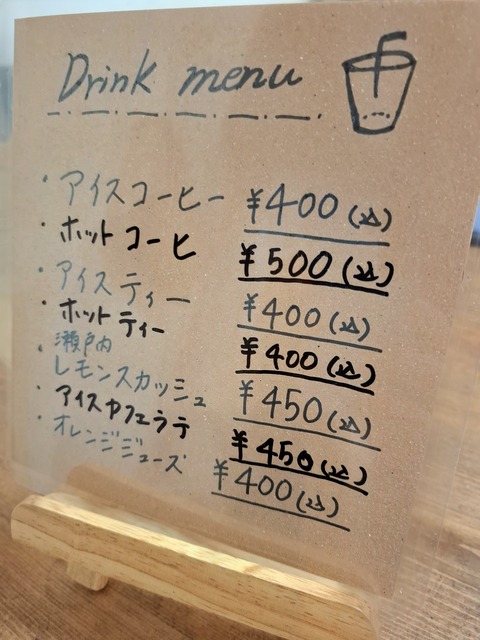 Drink menu
・アイスコーヒー ¥400(込)
・ホットコーヒ ¥500(込)
・アイスティー ¥400(込)
・ホットティー ¥400(込)
・瀬戸内
レモンスカッシュ ¥450(込)
・アイスカフェラテ ¥450(込)
・オレンジジューズ ¥400(込)